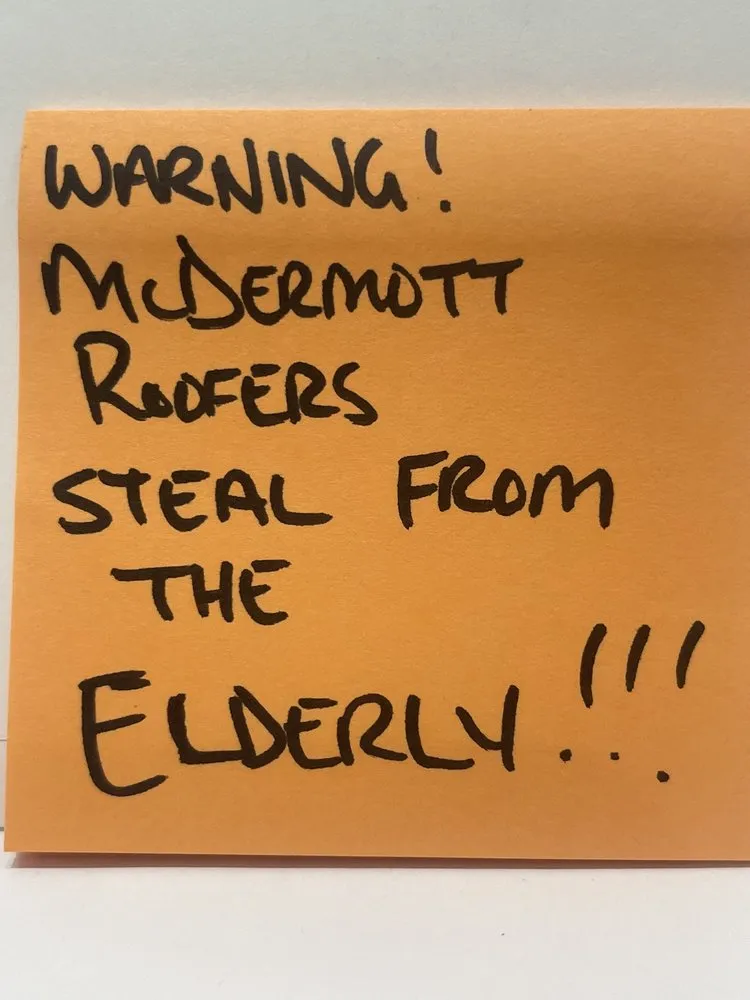 WARNING!
McDERMOTT
ROOFERS
STEAL FROM
THE
ELDERLY!!!